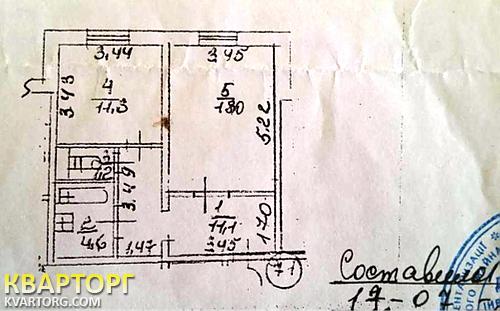 3,44
3,45
3,43
4
11,3
5
18,0
5,22
3
1,2
3,49
2
4,6
1
11,1
1,70
1,47
3,45
71
Составлено
17-07-
КВАРТОРГ
KVARTORG.COM